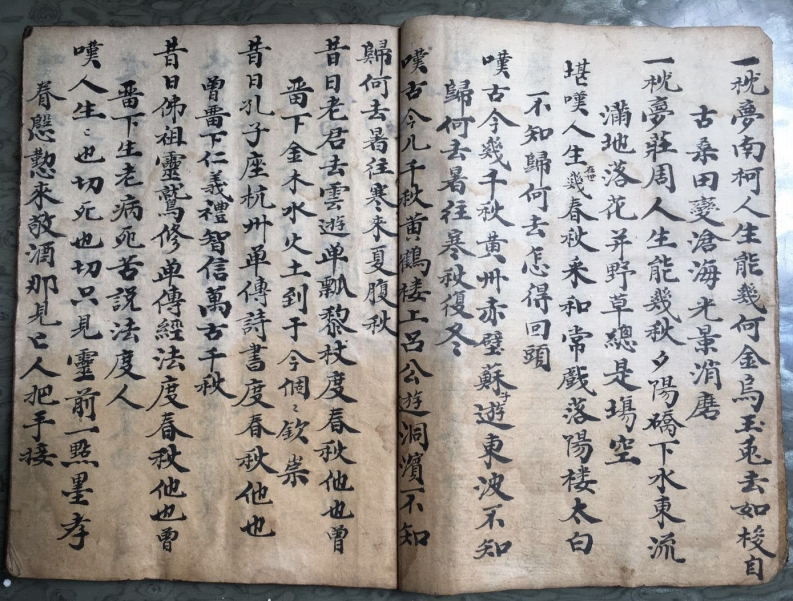 一枕夢南柯人生能幾何金烏玉兎去如梭自
古桑田變滄海光景消磨
一枕夢莊周人生能幾秋夕陽橋下水東流
滿地落花并野草總是塲空
堪嘆人生幾春秋采和常戲落陽楼太白
不知歸何去怎得回頭
嘆古今幾千秋黄州赤壁蘇遊東波不知
歸何去暑往寒秋復冬
嘆古今几千秋黄鶴楼上呂公遊洞濱不知
歸何去暑往寒来夏腹秋
昔日老君去雲遊单瓢黎杖度春秋他也曾
畨下金木水火土到于今個〻欽崇
昔日孔子座杭州单傳詩書度春秋他也
曾畨下仁義禮智信萬古千秋
昔日佛祖靈鷲修单傳經法度春秋他也曾
畨下生老病死苦説法度人
嘆人生〻也切死也切只見靈前一點墨孝
眷慇懃來敬酒那見亡人把手接